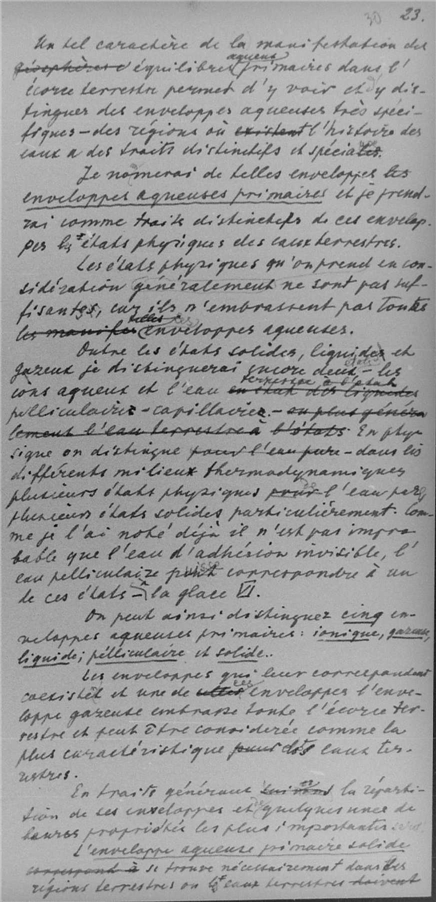 30 23.
Un tel caractère de la manifestation des
géosphères d'équilibres aqueux primaires dans l'
écorce terrestre permet d'y voir et d'y dis-
tinguer des enveloppes aqueuses très spéci-
fiques – des régions où existent l'histoire des
eaux a des traits distinctifs et spéciales.
Je nomerai de telles enveloppes les
enveloppes aqueuses primaires et je prend-
rai comme traits distinctifs de ces envelop-
pes les états physiques des eaux terrestres.
Les états physiques qu'on prend en con-
sidération généralement ne sont pas suf-
fisantes, car ils n'embrassent pas toutes
les manifes telles enveloppes aqueuses.
Outre les états solides, liquides et
gazeux je distinguerai encore deux – les
ions aqueux et l'eau terrestre à l'état en état des liquides
pelliculaire – capillaire – en plus généra
lement l'eau terrestre à l'état. En phy-
sique on distingue pour l'eau pure – dans les
différents milieux thermodynamiques
plusieurs états physiques pour l'eau pure,
plusieurs états solides particulièrement. Com-
me je l'ai noté déjà il n'est pas impro-
bable que l'eau d'adhésion invisible, l'
eau pelliculaire peut correspondre à un
de ces états – la glace VI.
On peut ainsi distinguer cinq en-
veloppes aqueuses primaires: ionique, gazeuse,
liquide; pelliculaire et solide.
Les enveloppes qui leur correspondent
coexistet et une de ces enveloppes l'enve-
loppe gazeuse embrasse toute l'écorce ter-
restre et peut être considerée comme la
plus caractéristique pour des eaux ter-
restres.
En traits généraux la réparti-
tion de ces enveloppes et quelques unes de
leurs propriétés les plus importantes
L'enveloppe aqueuse primaire solide
correspond à se trouve nécessairement dans les
régions terrestres où les eaux terrestres doivent